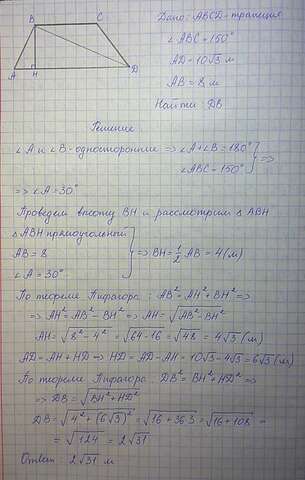 B C
A H D
Дано: ABCD-трапеция
∠ABC=150°
AD=10√3 м
AB=8 м
Найти DB
Решение
∠A и ∠B-односторонние => ∠A+∠B=180°
∠ABC=150° } =>
=> ∠A=30°
Проведем высоту BH и рассмотрим △ABH
△ABH прямоугольный
AB=8
∠A=30° } => BH=1/2 AB=4(м)
По теореме Пифагора: AB²=AH²+BH² =>
=> AH²=AB²-BH² => AH=√(AB²-BH²)
AH=√(8²-4²)=√(64-16)=√48=4√3 (м)
AD=AH+HD => HD=AD-AH=10√3-4√3=6√3(м)
По теореме Пифагора DB²=BH²+HD² =>
=> DB=√(BH²+HD²)
DB=√(4²+(6√3)²)=√(16+36·3)=√(16+108)=
=√124=2√31
Ответ 2√31 м